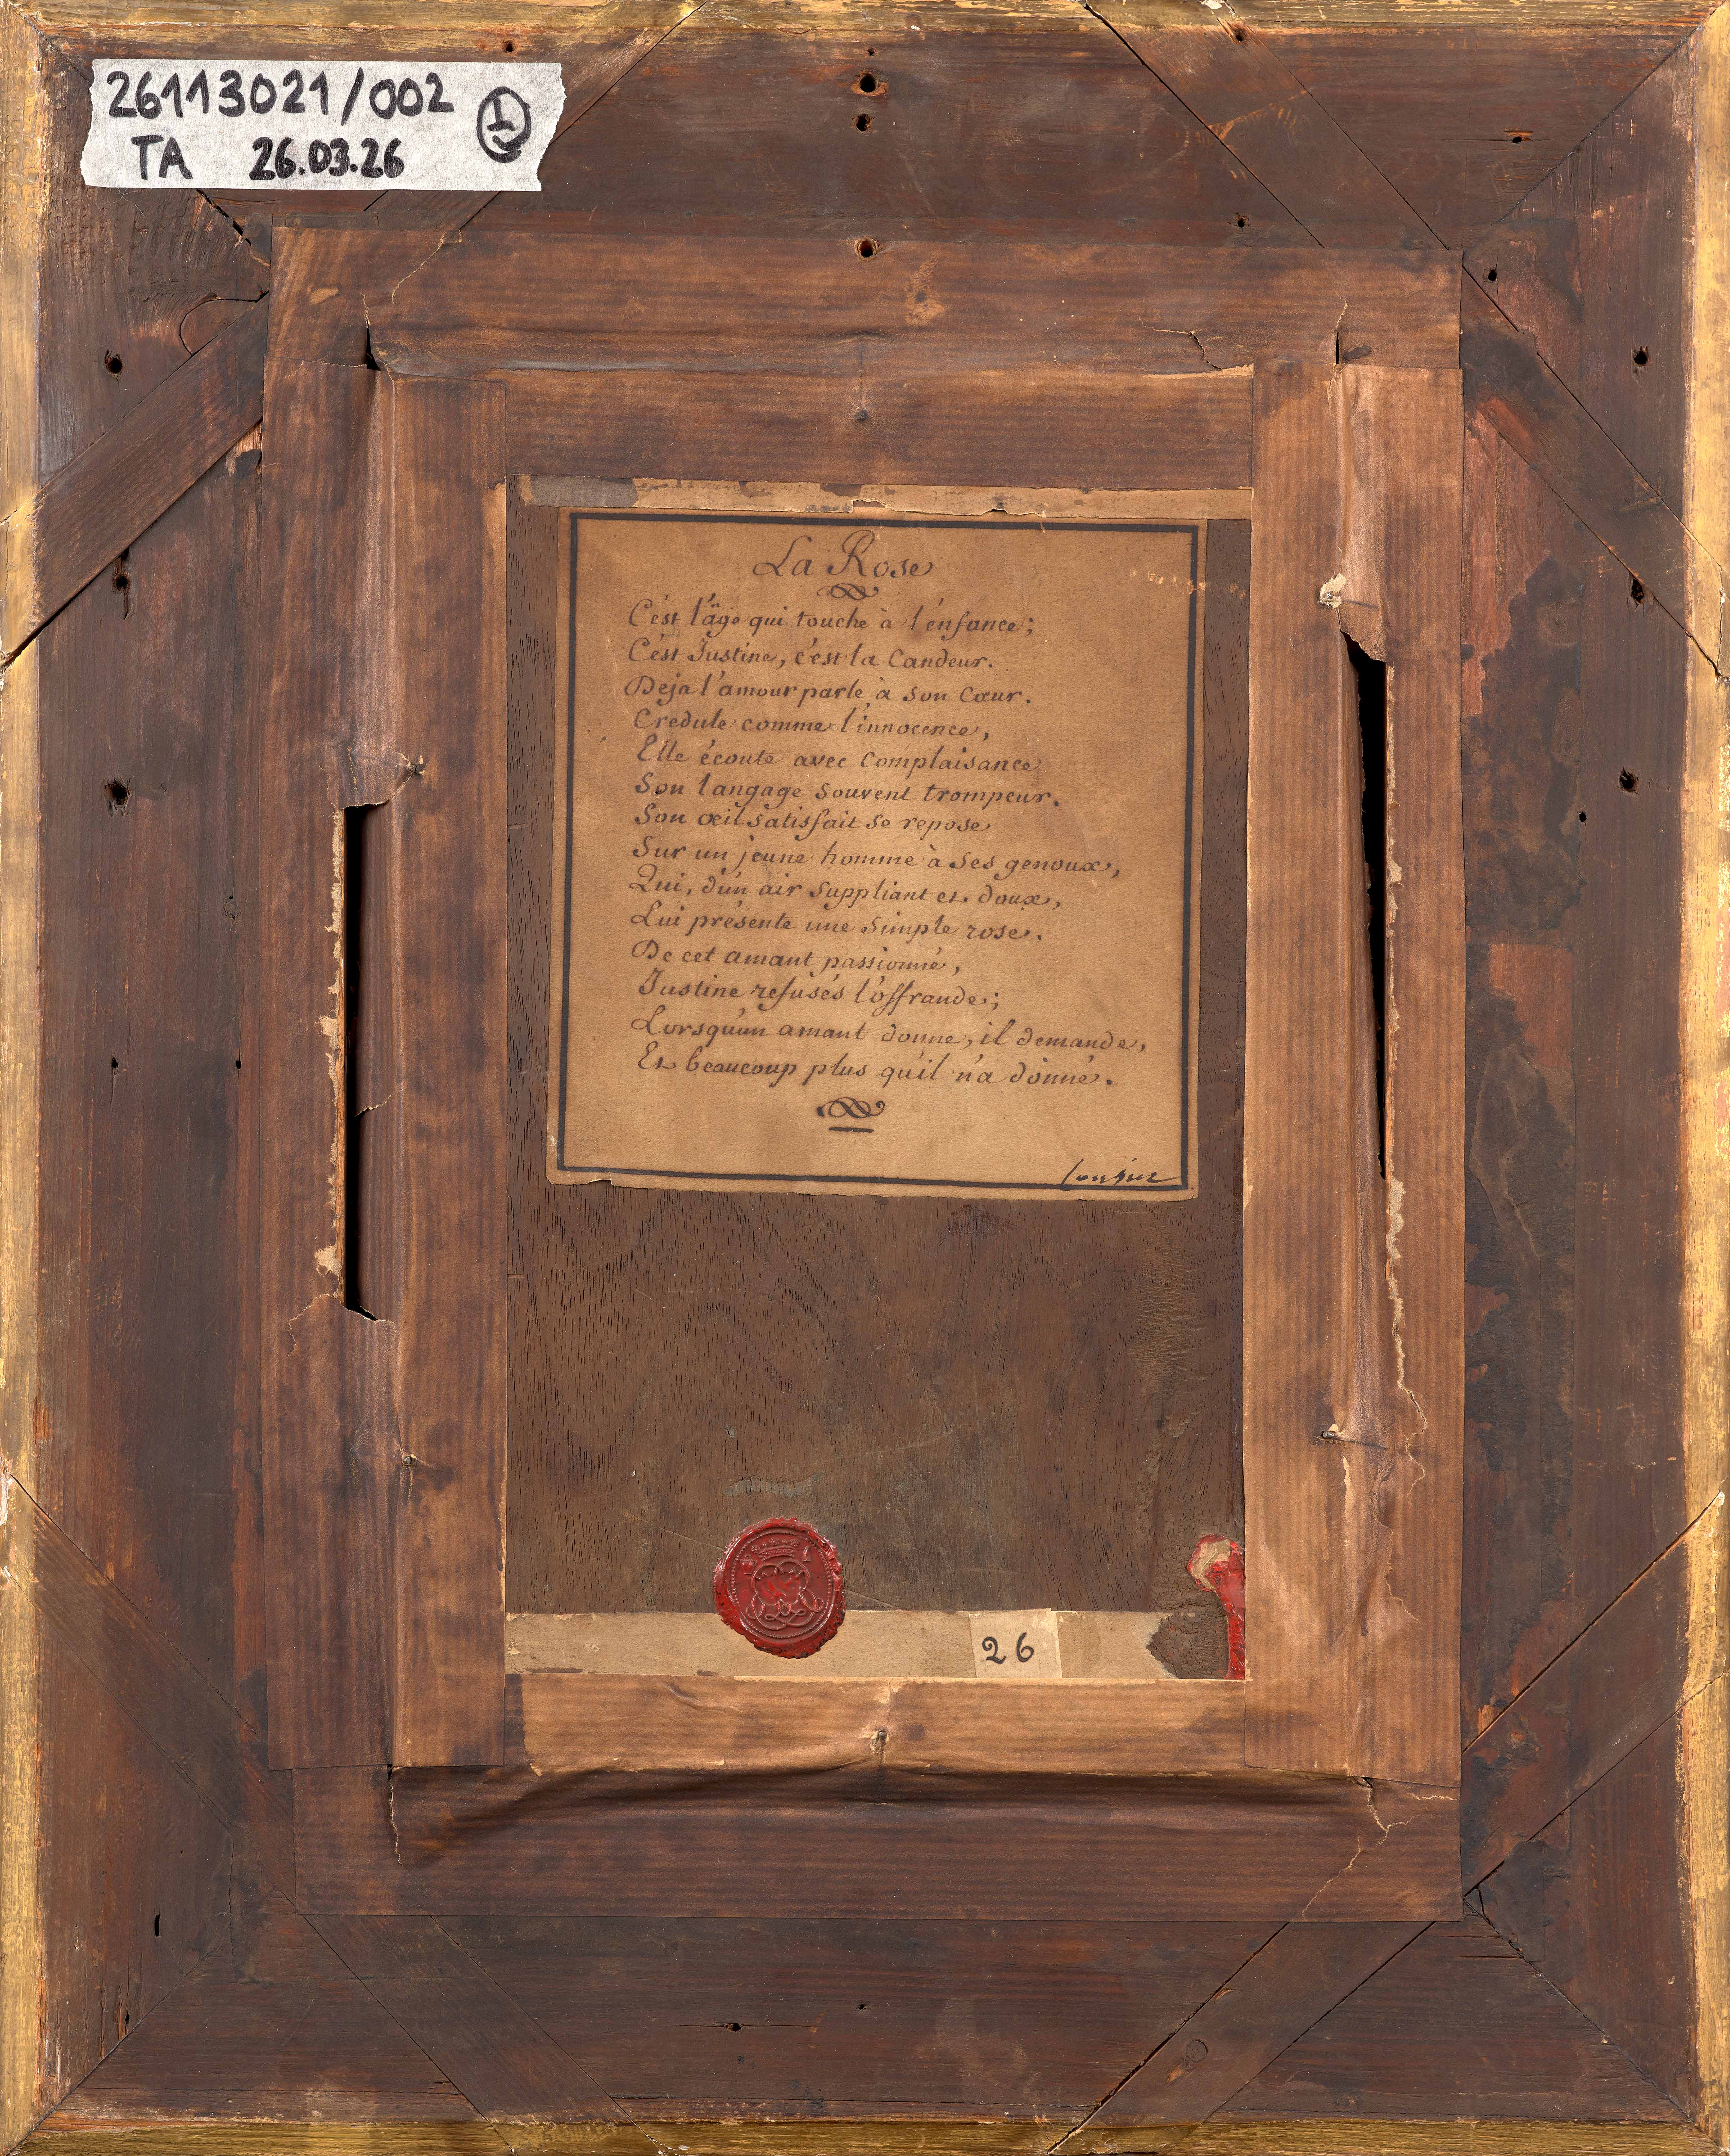 26113021/002
TA 26.03.26
La Rose
C'est l'âge qui touche à l'enfance;
C'est Justine, c'est la Candeur.
Deja l'amour parle à son Cœur.
Credule comme l'innocence,
Elle écoute avec Complaisance
Son langage souvent trompeur.
Son œil satisfait se repose
Sur un jeune homme à ses genoux,
Qui, d'un air suppliant et doux,
Lui présente une simple rose.
De cet amant passionné,
Justine refusés l'offrande;
Lorsqu'un amant donne, il demande,
Et beaucoup plus qu'il n'a donné.
26